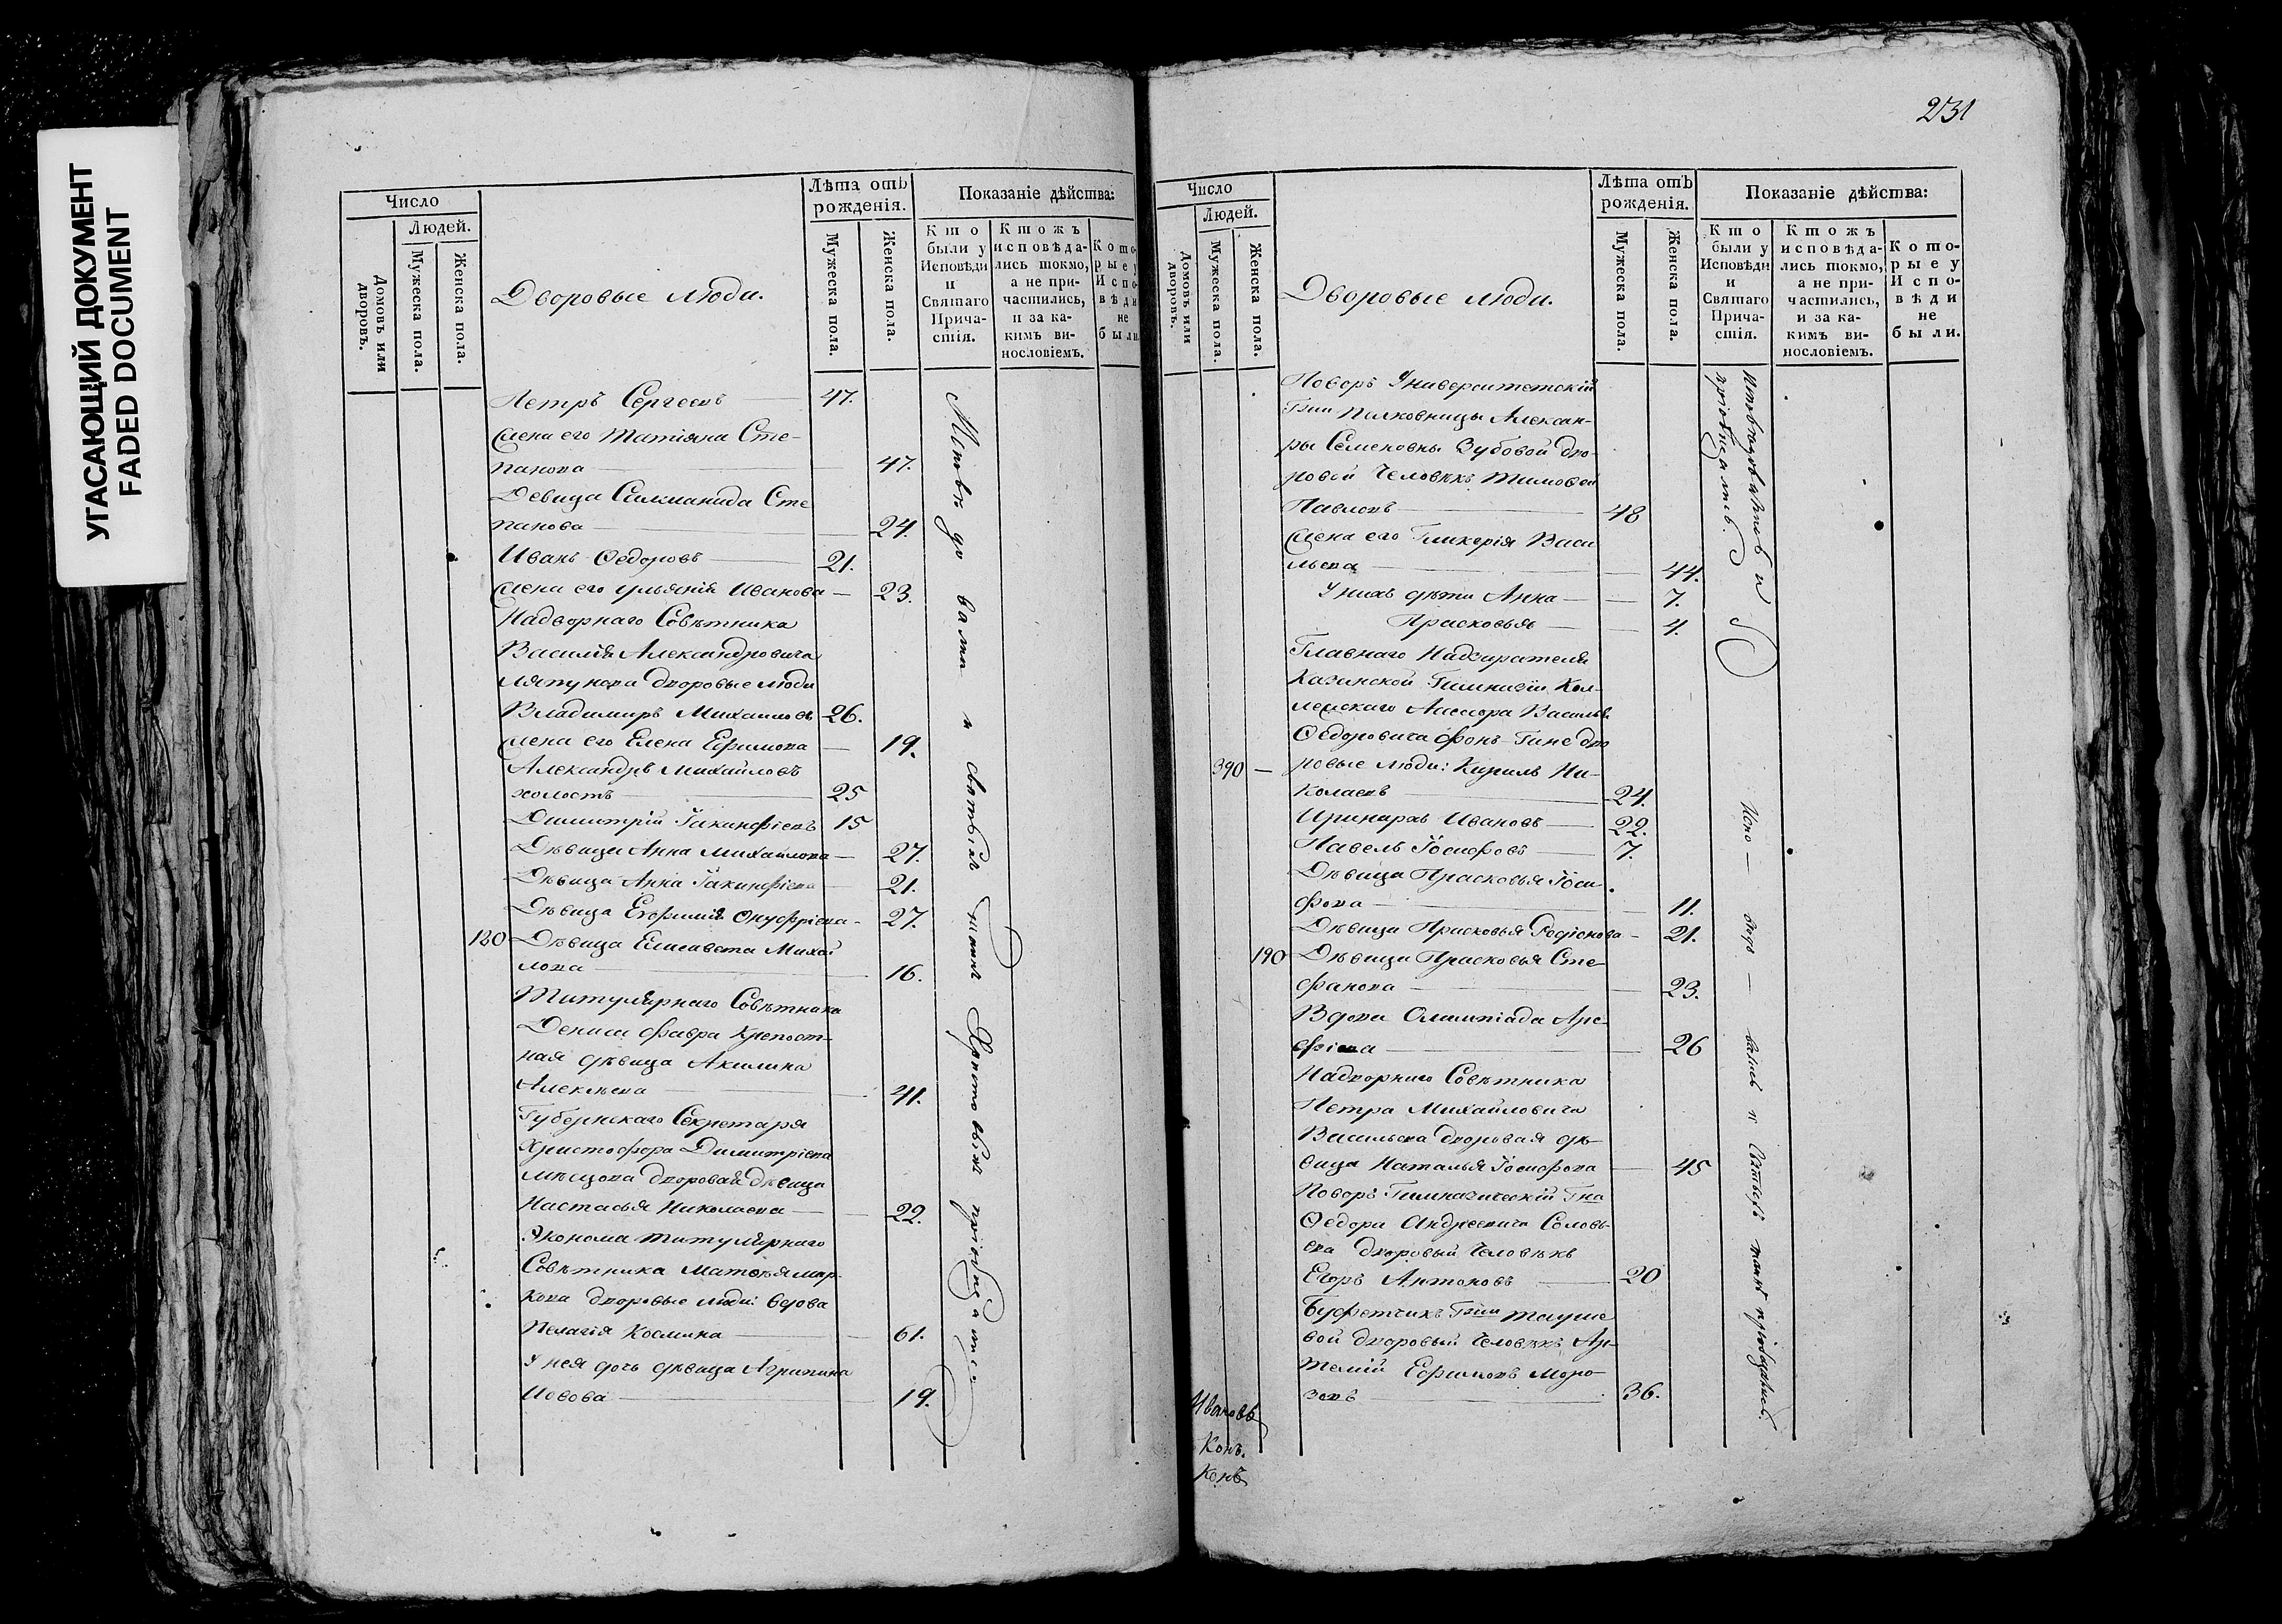 УГАСАЮЩИЙ ДОКУМЕНТ
FADED DOCUMENT
Число
Людей.
Домовъ или дворовъ.
Мужеска пола.
Женска пола.
Дворовые люди.
Лѣта отъ рожденія.
Мужеска пола.
Женска пола.
Показаніе дѣйства:
Кто были у Исповѣди и Святаго Причастія.
Ктожъ исповѣдались токмо, а не причастились, и за какимъ винословіемъ.
Которые у Исповѣди не были.
Петръ Сергеевъ 47.
Жена его Татіяна Сте-
панова 47.
Девица Саломанида Сте
панова 24.
Иванъ Ѳедоровъ 21.
Жена его Ульянія Иванова 23.
Надворнаго Совѣтника
Василія Александровича
Ляпунова дворовые люди
Владимиръ Михайловъ 26.
Жена его Елена Ефимова 19.
Александръ Михайловъ
холостъ 25
Димитрій Іакинфіевъ 15
Дѣвица Анна Михайлова 27.
Дѣвица Анна Іакинфіева 21.
Дѣвица Евфимія Онуфріева 27.
180 Дѣвица Елисавета Михай
лова 16.
Титулярнаго Совѣтника
Дениса Фавра крепост-
ная дѣвица Акилина
Алексѣева 41.
Губернскаго Секретаря
Христофора Димитріева
дворовая дѣвица
Настасья Николаева 22.
Эконома Титулярнаго
Совѣтника Матвѣя Мар-
кова дворовые люди: вдова
Пелагія Космина 61.
У нея дочь дѣвица Агрипина
Иевова 19.
231
Число
Людей.
Домовъ или дворовъ.
Мужеска пола.
Женска пола.
Дворовые люди.
Лѣта отъ рожденія.
Мужеска пола.
Женска пола.
Показаніе дѣйства:
Кто были у Исповѣди и Святаго Причастія.
Ктожъ исповѣдались токмо, а не причастились, и за какимъ винословіемъ.
Которые у Исповѣди не были.
Поворъ Университетскій
Гжи Полковницы Алексан-
ры Семеновны Зубовой дво-
ровой человѣкъ Тимоѳей
Павловъ 48
Жена его Гликерія Васи
льева 44.
У нихъ дѣти Анна 7.
Прасковья 4.
Главнаго Надзирателя
Казанской Гимназіи Кол-
лежскаго Ассесора Василья
Ѳедоровича Фонъ-Гине дво
390 — ровые люди: Кирилъ Ни-
колаевъ 24.
Иринархъ Ивановъ 22.
Павелъ Іосифовъ 7.
Дѣвица Прасковья Іоси
фова 11.
Дѣвица Прасковья Родіонова 21.
190 Дѣвица Прасковья Сте-
фанова 23.
Вдова Олимпіада Аре-
фіева 26
Надворнаго Совѣтника
Петра Михайловича
Васильева дворовая дѣ-
вица Наталья Іосифова 45
Поворъ Гимназическій Гна
Ѳедора Андреевича Соловь-
ева дворовый человѣкъ
Егоръ Антоновъ 20
Буфетчикъ Гжи
вой дворовый человѣкъ Ар-
темій Ефимовъ Моро-
зовъ 36.
Ивановъ